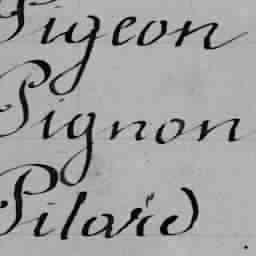 Pigeon
Pignon
Pilard